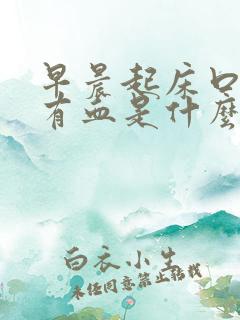 早晨起床口
有血是什麼
白衣小生
未经同意禁止转载